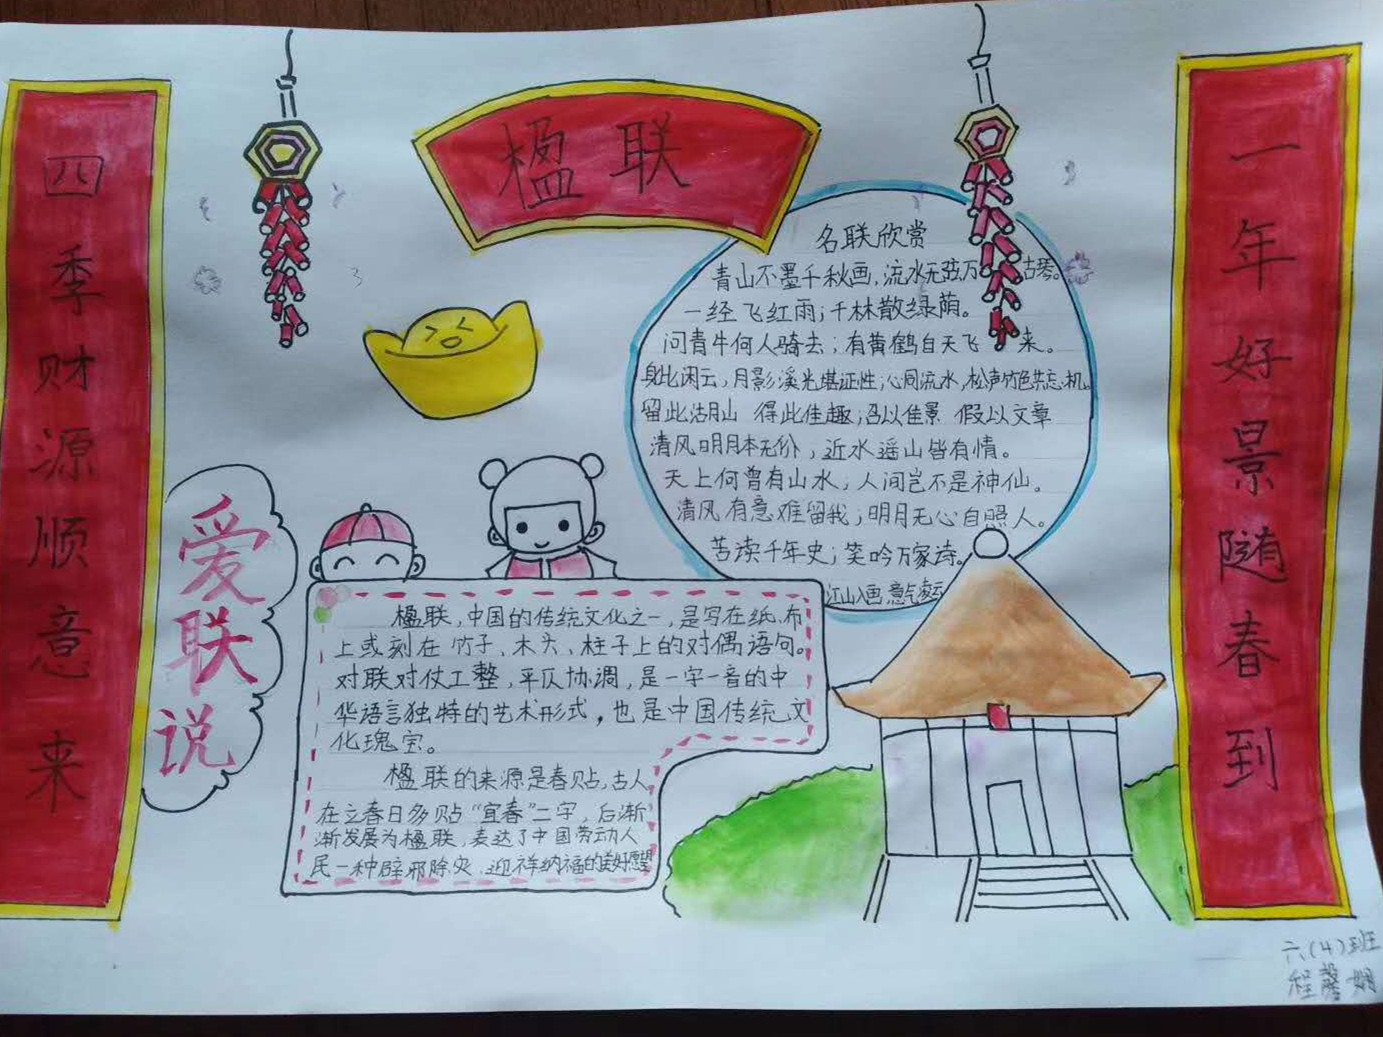 楹联
一年好景随春到
四季财源顺意来
名联欣赏
青山不墨千秋画,流水无弦万古琴。
一经飞红雨;千林散绿荫。
问青牛何人骑去;有黄鹤自天飞来。
身比闲云,月影溪光堪证性;心同流水,松声竹色共忘机。
留此湖山 得此佳趣;召以佳景 假以文章
清风明月本无价,近水遥山皆有情。
天上何曾有山水;人间岂不是神仙。
清风有意难留我;明月无心自照人。
苦读千年史;笑吟万家诗。
江山入画,意气凌云
爱联说
楹联,中国的传统文化之一,是写在纸、布
上或刻在竹子、木头、柱子上的对偶语句。
对联对仗工整,平仄协调,是一字一音的中
华语言独特的艺术形式,也是中国传统文
化瑰宝。
楹联的来源是春贴,古人
在立春日多贴“宜春”二字,后渐
渐发展为楹联,表达了中国劳动人
民一种辟邪除灾、迎祥纳福的美好愿望
六(4)班
程馨娴